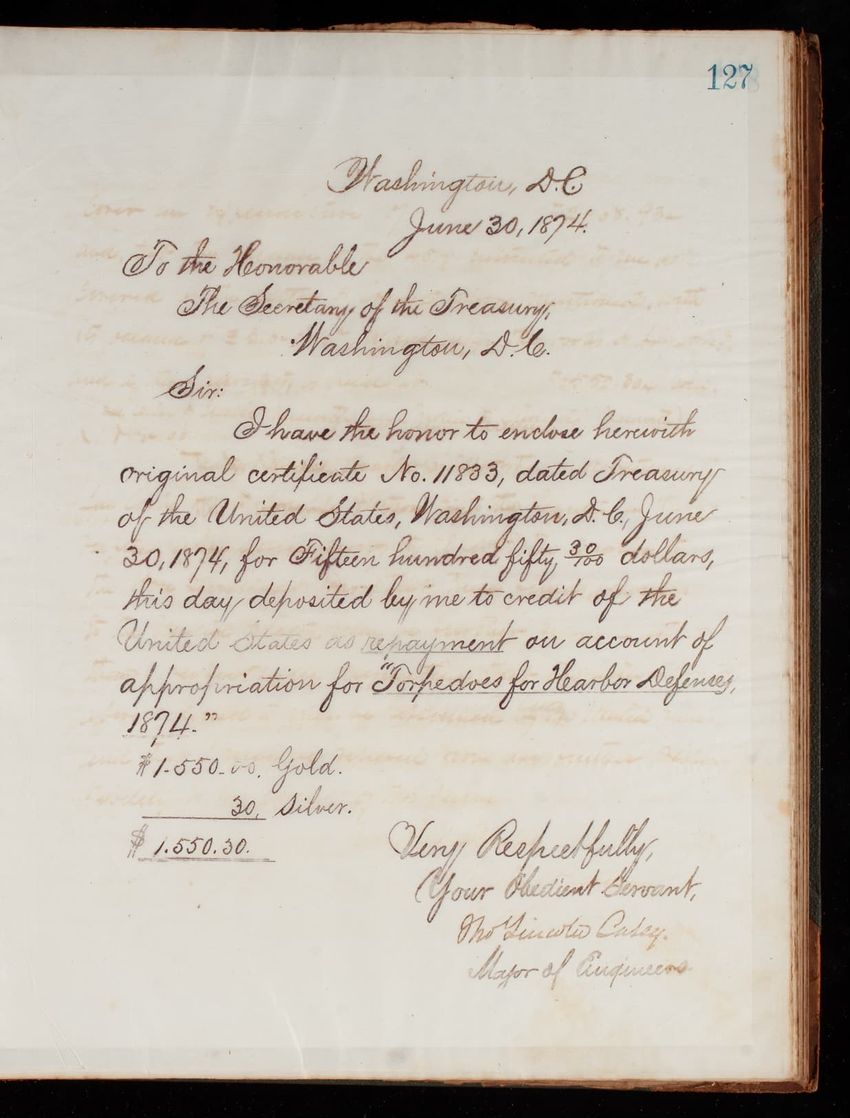 127
Washington, D.C.
June 30, 1874.
To the Honorable
The Secretary of the Treasury,
Washington, D.C.
Sir:
I have the honor to enclose herewith
original certificate No. 11833, dated Treasury
of the United States, Washington, D.C., June
30, 1874, for Fifteen hundred fifty, 30/100 dollars,
this day deposited by me to credit of the
United States as repayment on account of
appropriation for "Torpedoes for Harbor Defenses,
1874."
$1.550.00. Gold.
30, Silver.
$1.550.30.
Very Respectfully,
Your Obedient Servant,
Tho Lincoln Casey.
Major of Engineers